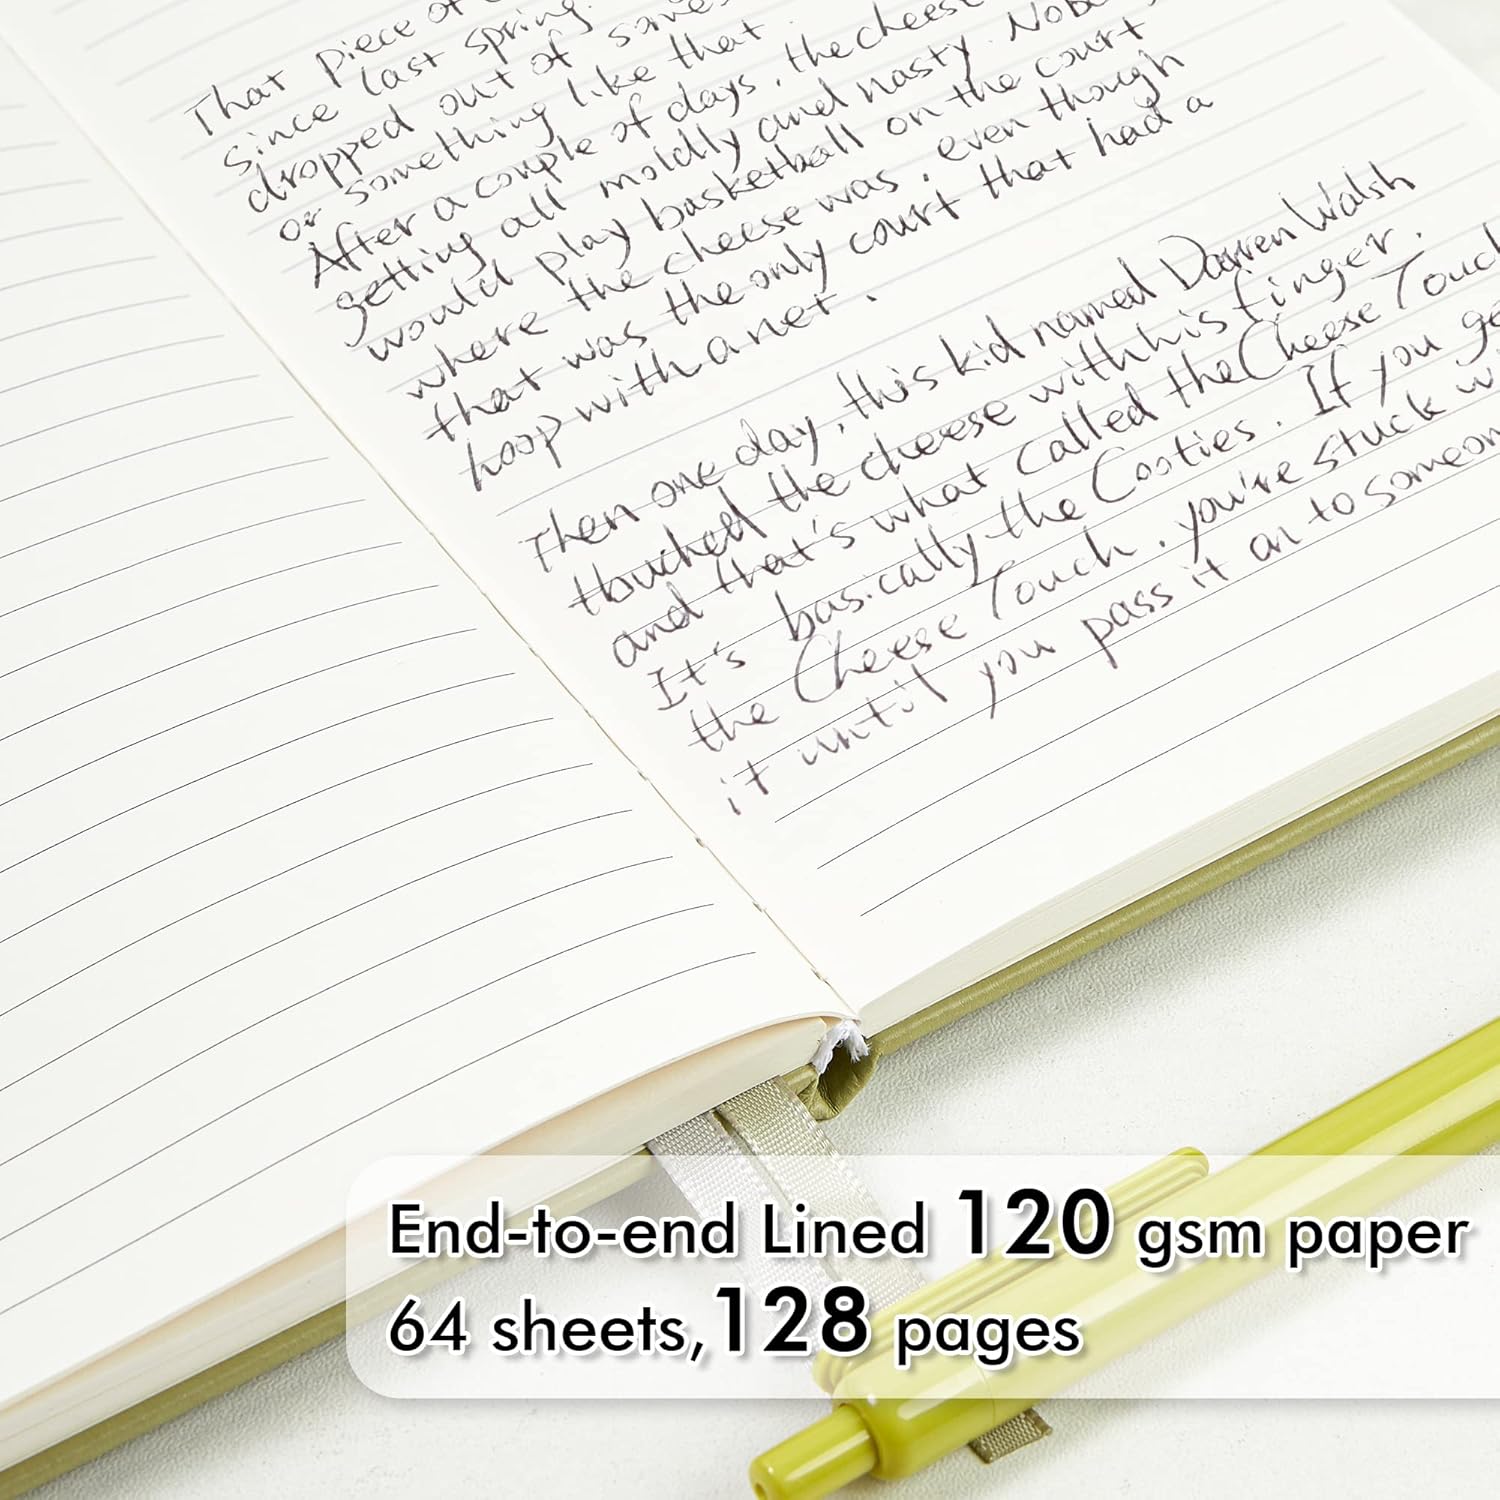 That piece of
since last spring.
dropped out of some
or something like that
After a couple of days, the cheese
getting all moldly and nasty. Nobo
would play basketball on the court
where the cheese was, even though
that was the only court that had a
hoop with a net.
Then one day, this kid named Darren Walsh
tbuched the cheese with his finger.
and that's what called the Cheese Touch
It's basically the Cooties. If you ge
the Cheese Touch, you're stuck wi
it until you pass it on to someon
End-to-end Lined 120 gsm paper
64 sheets, 128 pages